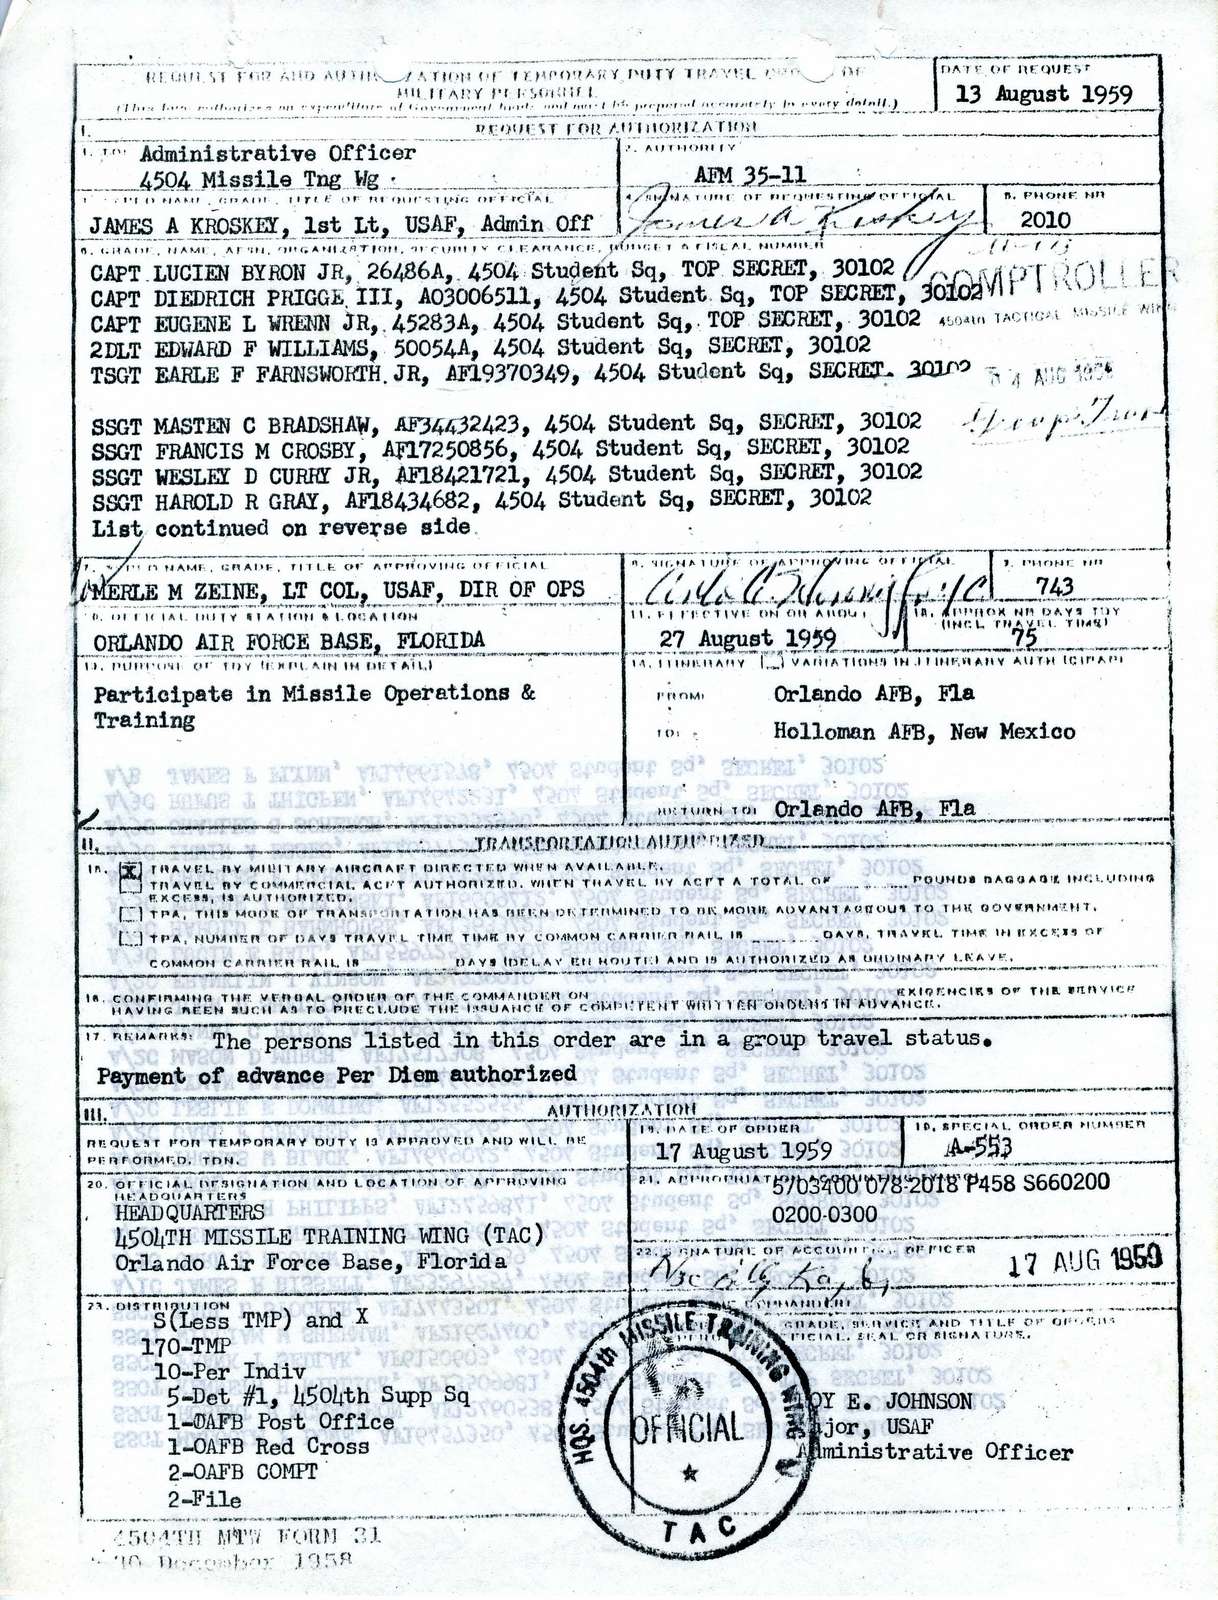 REQUEST FOR AND AUTHORIZATION OF TEMPORARY DUTY TRAVEL OF
MILITARY PERSONNEL
(This form authorizes an expenditure of Government funds and must be prepared accurately in every detail.)
DATE OF REQUEST
13 August 1959
I. REQUEST FOR AUTHORIZATION
1. TO: Administrative Officer
4504 Missile Tng Wg
2. AUTHORITY
AFM 35-11
3. TYPED NAME, GRADE, TITLE OF REQUESTING OFFICIAL
JAMES A KROSKEY, 1st Lt, USAF, Admin Off
4. SIGNATURE OF REQUESTING OFFICIAL
James A Kroskey
5. PHONE NR
2010
6. GRADE, NAME, AFSN, ORGANIZATION, SECURITY CLEARANCE, BUDGET & FISCAL NUMBER
CAPT LUCIEN BYRON JR, 26486A, 4504 Student Sq, TOP SECRET, 30102
CAPT DIEDRICH PRIGGE III, AO3006511, 4504 Student Sq, TOP SECRET, 30102
CAPT EUGENE L WRENN JR, 45283A, 4504 Student Sq, TOP SECRET, 30102
2DLT EDWARD F WILLIAMS, 50054A, 4504 Student Sq, SECRET, 30102
TSGT EARLE F FARNSWORTH JR, AF19370349, 4504 Student Sq, SECRET, 30102
COMPTROLLER
4504th TACTICAL MISSILE WING
AUG 1959
SSGT MASTEN C BRADSHAW, AF34432423, 4504 Student Sq, SECRET, 30102
SSGT FRANCIS M CROSBY, AF17250856, 4504 Student Sq, SECRET, 30102
SSGT WESLEY D CURRY JR, AF18421721, 4504 Student Sq, SECRET, 30102
SSGT HAROLD R GRAY, AF18434682, 4504 Student Sq, SECRET, 30102
List continued on reverse side
7. TYPED NAME, GRADE, TITLE OF APPROVING OFFICIAL
MERLE M ZEINE, LT COL, USAF, DIR OF OPS
8. SIGNATURE OF APPROVING OFFICIAL
9. PHONE NR
743
10. OFFICIAL DUTY STATION & LOCATION
ORLANDO AIR FORCE BASE, FLORIDA
11. EFFECTIVE ON OR ABOUT
27 August 1959
12. APPROX NR DAYS TDY
(INCL TRAVEL TIME)
75
13. PURPOSE OF TDY (EXPLAIN IN DETAIL)
Participate in Missile Operations &
Training
14. ITINERARY VARIATIONS IN ITINERARY AUTH (CIPAP)
FROM: Orlando AFB, Fla
TO: Holloman AFB, New Mexico
RETURN TO: Orlando AFB, Fla
II. TRANSPORTATION AUTHORIZED
15. X TRAVEL BY MILITARY AIRCRAFT DIRECTED WHEN AVAILABLE.
TRAVEL BY COMMERCIAL ACFT AUTHORIZED. WHEN TRAVEL BY ACFT A TOTAL OF ______ POUNDS BAGGAGE INCLUDING
EXCESS, IS AUTHORIZED.
TPA, THIS MODE OF TRANSPORTATION HAS BEEN DETERMINED TO BE MORE ADVANTAGEOUS TO THE GOVERNMENT.
TPA, NUMBER OF DAYS TRAVEL TIME TIME BY COMMON CARRIER RAIL IS ______ DAYS, TRAVEL TIME IN EXCESS OF
COMMON CARRIER RAIL IS ______ DAYS (DELAY EN ROUTE) AND IS AUTHORIZED AS ORDINARY LEAVE.
16. CONFIRMING THE VERBAL ORDER OF THE COMMANDER ON ______ EXIGENCIES OF THE SERVICE
HAVING BEEN SUCH AS TO PRECLUDE THE ISSUANCE OF COMPETENT WRITTEN ORDERS IN ADVANCE.
17. REMARKS: The persons listed in this order are in a group travel status.
Payment of advance Per Diem authorized
III. AUTHORIZATION
REQUEST FOR TEMPORARY DUTY IS APPROVED AND WILL BE
PERFORMED. TDN.
18. DATE OF ORDER
17 August 1959
19. SPECIAL ORDER NUMBER
A-553
20. OFFICIAL DESIGNATION AND LOCATION OF APPROVING
HEADQUARTERS
HEADQUARTERS
4504TH MISSILE TRAINING WING (TAC)
Orlando Air Force Base, Florida
21. 5703400 078-2018 P458 S660200
0200-0300
22. SIGNATURE OF ACCOUNTING OFFICER
17 AUG 1959
23. DISTRIBUTION
S(Less TMP) and X
170-TMP
10-Per Indiv
5-Det #1, 4504th Supp Sq
1-OAFB Post Office
1-OAFB Red Cross
2-OAFB COMPT
2-File
GRADE, SERVICE AND TITLE OF
OFFICIAL, SEAL OR SIGNATURE.
HQS. 4504th MISSILE TRAINING WING
OFFICIAL
TAC
ROY E. JOHNSON
Major, USAF
Administrative Officer
4504TH MTW FORM 31
30 December 1958